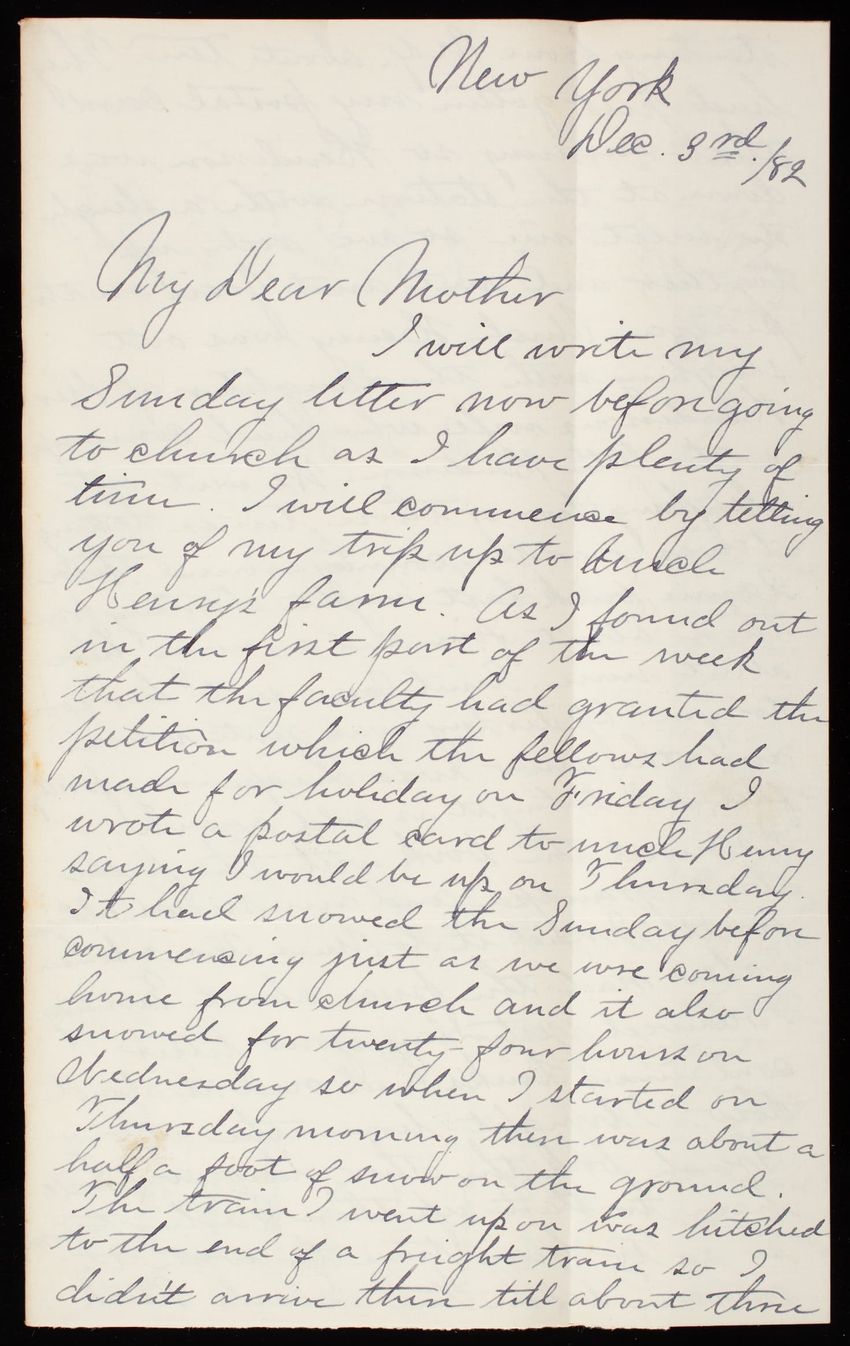 New York
Dec. 3rd./82
My Dear Mother
I will write my
Sunday letter now before going
to church as I have plenty of
time. I will commence by telling
you of my trip up to Uncle
Henry's farm. As I found out
in the first part of the week
that the faculty had granted the
petition which the fellows had
made for holiday on Friday I
wrote a postal card to uncle Henry
saying I would be up on Thursday.
It had snowed the Sunday before
commencing just as we were coming
home from church and it also
snowed for twenty-four hours on
Wednesday so when I started on
Thursday morning there was about a
half a foot of snow on the ground.
The train I went up on was hitched
to the end of a freight train so I
didn't arrive there till about three